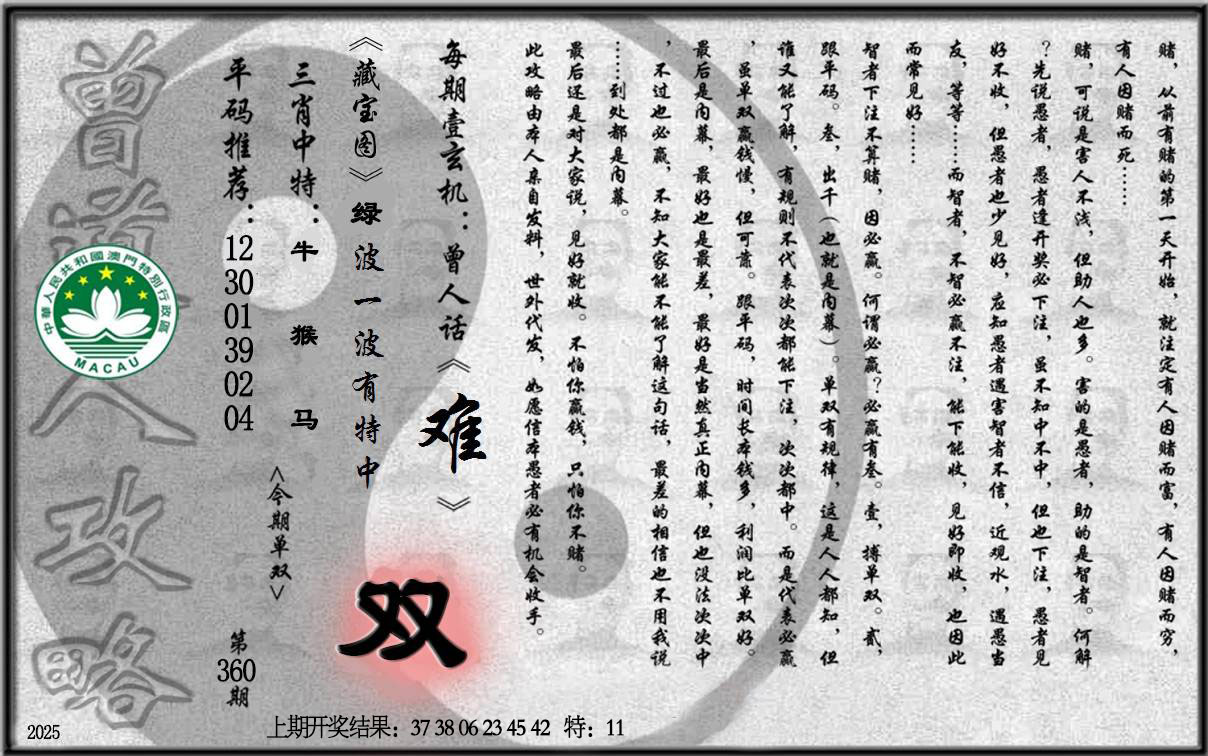 赌，从前有赌的第一天开始，就注定有人因赌而富，有人因赌而穷，
有人因赌而死……
赌，可说是害人不浅，但助人也多。害的是愚者，助的是智者。何解
？先说愚者，愚者逢开奖必下注，虽不知中不中，但也下注，愚者见
好不收，但愚者也少见好，应知愚者遇害智者不信，近观水，遇愚当
友，等等……而智者，不智必赢不注，能下能收，见好即收，也因此
而常见好……
智者下注不算赌，因必赢。何谓必赢？必赢有叁。壹，搏单双。贰，
跟平码。叁，出千（也就是内幕）。单双有规律，这是人人都知，但
谁又能了解，有规则不代表次次都能下注，次次都中。而是代表必赢
，虽单双赢钱慢，但可靠。跟平码，时间长本钱多，利润比单双好。
最后是内幕，最好也是最差，最好是当然真正内幕，但也没法次次中
，不过也必赢，不知大家能不能了解这句话，最差的相信也不用我说
……到处都是内幕。
最后还是对大家说，见好就收。不怕你赢钱，只怕你不赌。
此攻略由本人亲自发料，世外代发，如愿信本愚者必有机会收手。
每期壹玄机：曾人话《难》
《藏宝图》绿波一波有特中
双
三肖中特：牛 猴 马
<今期单双>
平码推荐：12 30 01 39 02 04
第360期
曾道人攻略
中華人民共和國澳門特別行政區
MACAU
2025
上期开奖结果：37 38 06 23 45 42 特：11